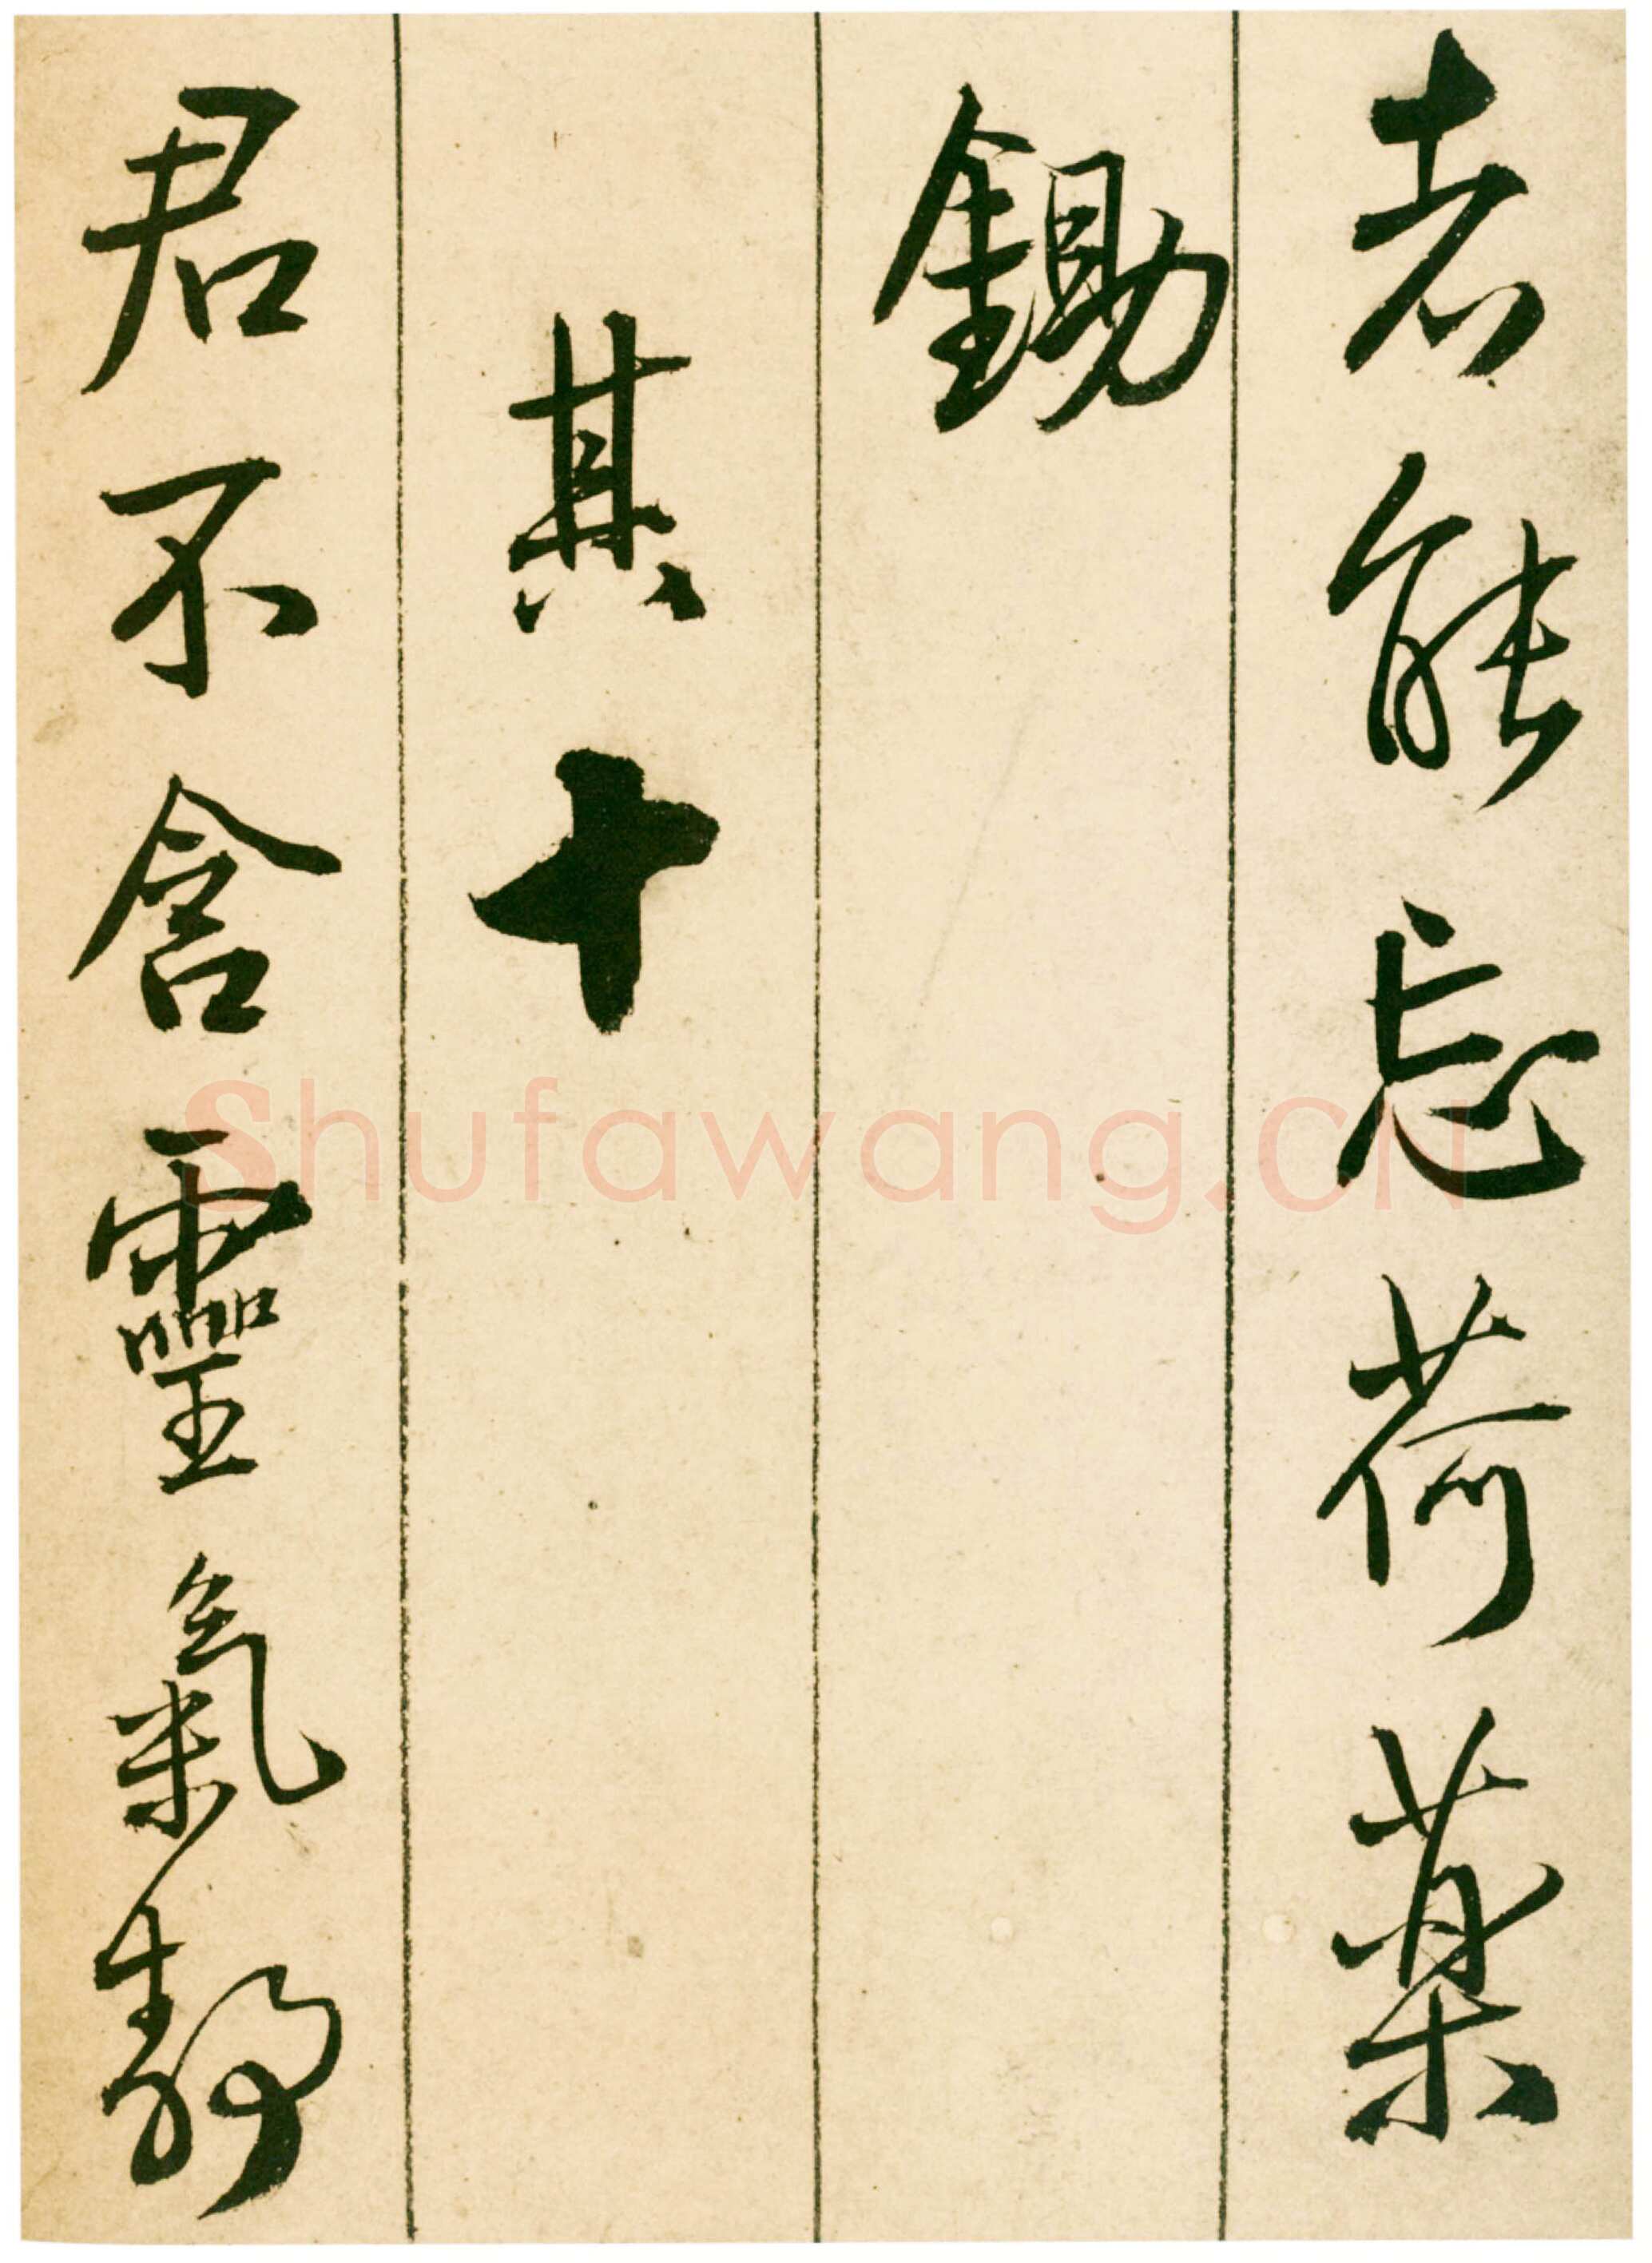 老能忘荷藥
鋤
其十
君不含靈氣靜
Shufawang.CN